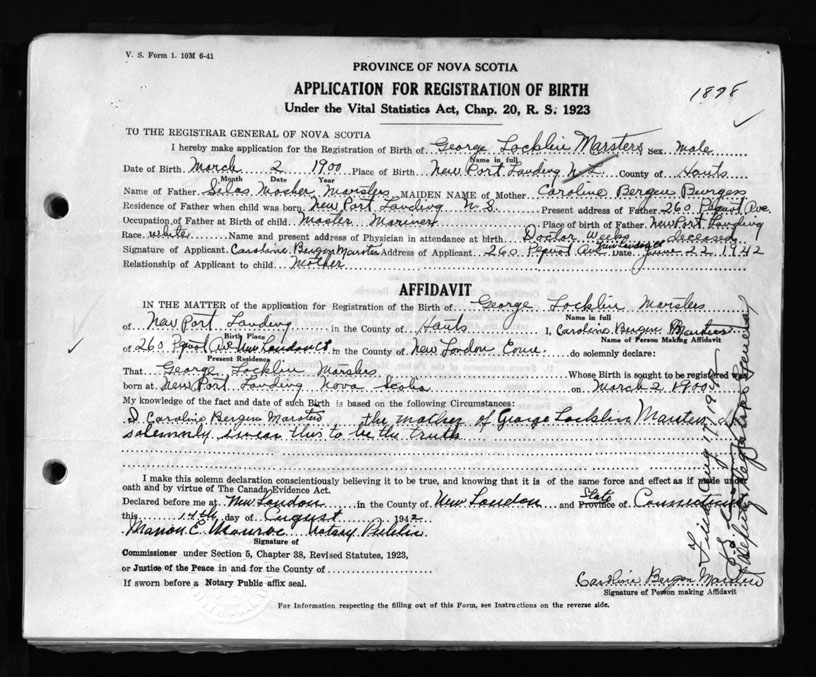 V. S. Form 1. 10M 6-41
PROVINCE OF NOVA SCOTIA
APPLICATION FOR REGISTRATION OF BIRTH
Under the Vital Statistics Act, Chap. 20, R. S. 1923
1898
TO THE REGISTRAR GENERAL OF NOVA SCOTIA
I hereby make application for the Registration of Birth of George Locklin Marsters Sex male
Name in full
Date of Birth March 2 1900 Place of Birth New Port Landing N S County of Hants
Month Date Year
Name of Father Silas Mosher Marsters MAIDEN NAME of Mother Caroline Bergen Burgess
Residence of Father when child was born New Port Landing N. S. Present address of Father 260 Pequot Ave.
Occupation of Father at Birth of child Master Mariner Place of birth of Father New Port Landing
Race white Name and present address of Physician in attendance at birth Doctor Weeks deceased
New London Ct
Signature of Applicant Caroline Bergen Marsters Address of Applicant 260 Pequot Ave Date June 22 1942
Relationship of Applicant to child Mother
AFFIDAVIT
IN THE MATTER of the application for Registration of the Birth of George Locklin Marsters
Name in full
of New Port Landing in the County of Hants I, Caroline Bergen Marsters
Birth Place Name of Person Making Affidavit
of 260 Pequot Ave New London Ct in the County of New London Conn. do solemnly declare:
Present Residence
That George Locklin Marsters Whose Birth is sought to be registered was
born at New Port Landing Nova Scotia on March 2 1900
My knowledge of the fact and date of such Birth is based on the following Circumstances:
I Caroline Bergen Marsters the mother of George Locklin Marsters do
solemnly swear this to be the truth
I make this solemn declaration conscientiously believing it to be true, and knowing that it is of the same force and effect as if made under
oath and by virtue of The Canada Evidence Act.
Declared before me at New London in the County of New London and Province of State Connecticut
this 14th day of August 1942
Marion E. Monroe Notary Public
Signature of
Commissioner under Section 5, Chapter 38, Revised Statutes, 1923,
or Justice of the Peace in and for the County of
If sworn before a Notary Public affix seal.
Caroline Bergen Marsters
Signature of Person making Affidavit
For Information respecting the filling out of this Form, see Instructions on the reverse side.
Deputy Registrar General